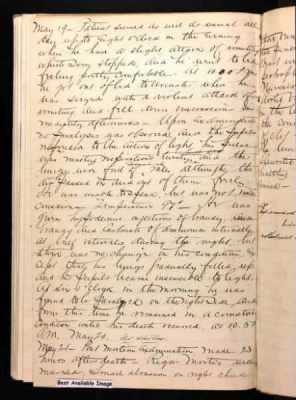 May 19 - Patient seemed as well as usual all
day until eight o'clock in the evening
when he had a slight attack of vomiting
which soon stopped and he went to bed
feeling fairly comfortable. At 10.00 p.m.
he got out of bed to urinate when he
was seized with a violent attack of
vomiting and fell down unconscious
immediately afterwards - Upon examination
no Paralysis was observed and the Pupils
responded to the action of light, his pulse
was and the
lungs were full of rales, although the
dispersed in and of them
He was but was not
conscious. Temperature 97° - He was
given hypodermic injections of brandy,
brandy and carbonate of ammonia internally
at brief intervals during the night, but
there was no change in his condition
that his lungs gradually filled up
and the pupils became insensible to light.
At six o'clock in the morning he was
found to be Paralyzed on the right side, and
from this time he remained in a comatose
condition until his death occurred at 10.50
A.M. May 20.
May 21 - Post Mortem examination made 23
hours after death - Rigor Mortis well
marked, small abrasion on right cheek
Best Available Image